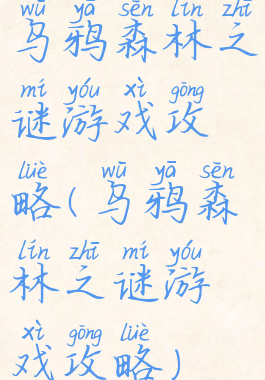 wū yā sēn lín zhī
乌鸦森林之
mí yóu xì gōng
谜游戏攻
lüè wū yā sēn
略(乌鸦森
lín zhī mí yóu
林之谜游
xì gōng lüè
戏攻略)